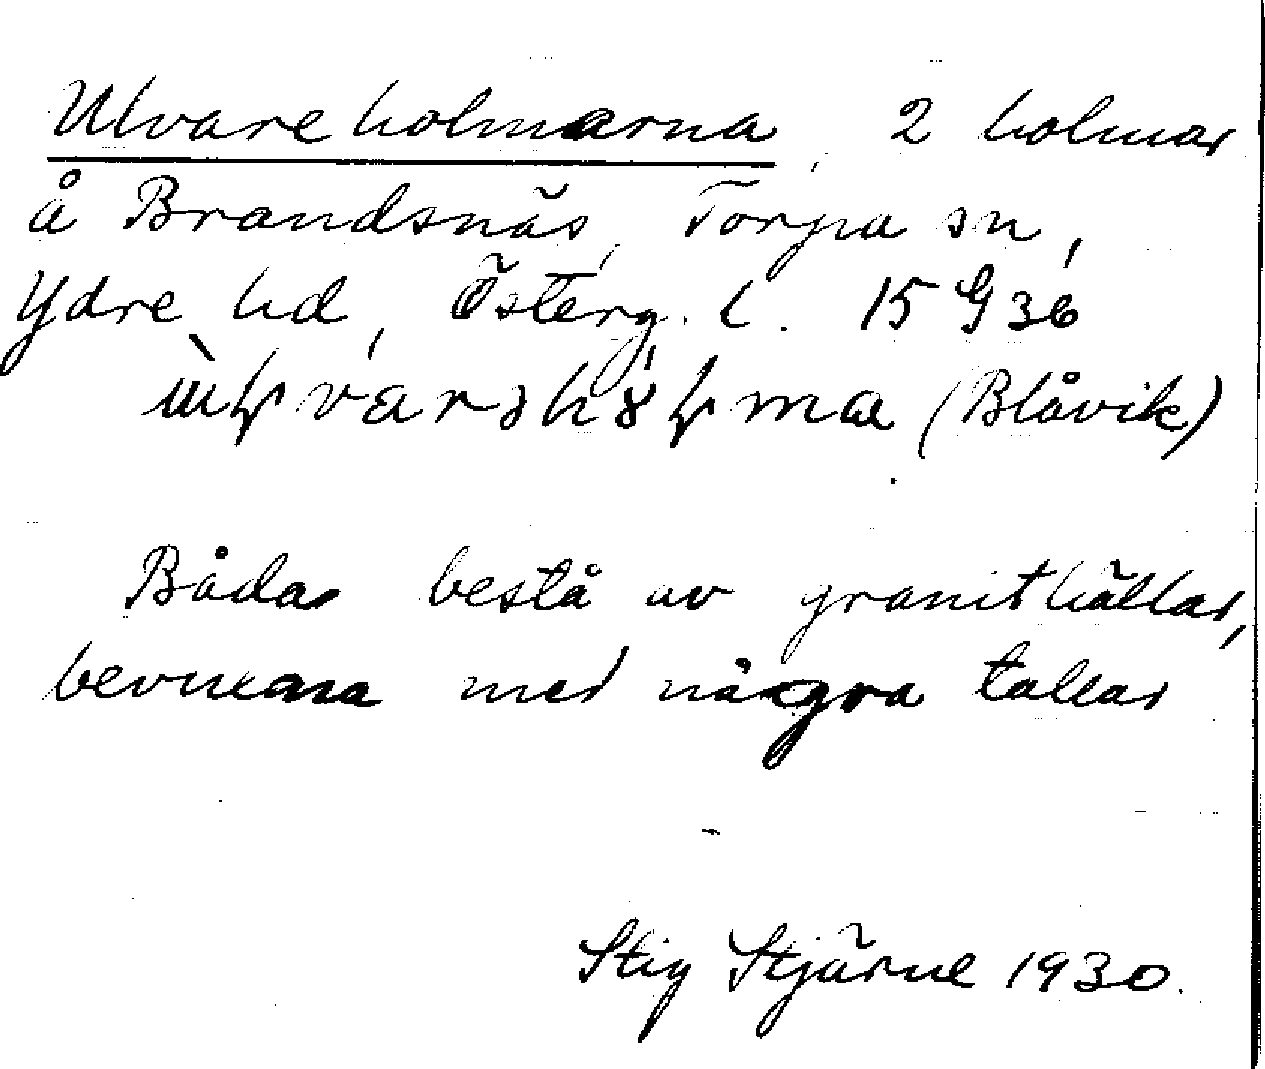 Ulvareholmarna, 2 holmar
å Brandsnäs, Torpa sn,
Ydre hd, Österg. l. 15 G 36
(Blåvik)
Båda bestå av granithällar,
bevuxna med några tallar
Stig Stjärne 1930.